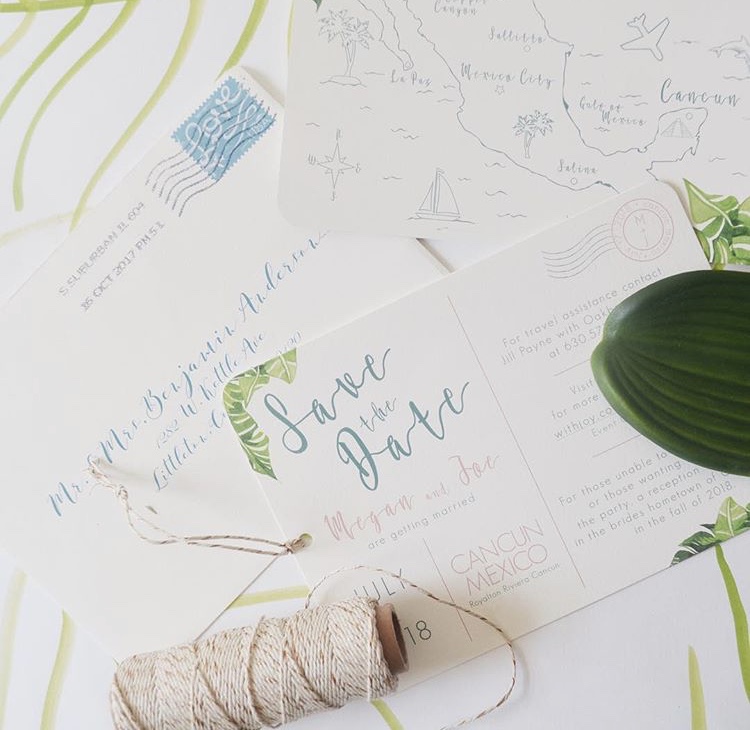 Canyon
Saltillo
La Paz
Mexico City
Gulf of
Mexico
Cancun
Salina
Love
S SUBURBAN IL 604
05 OCT 2017 PM 5 L
Mr. & Mrs. Benjamin Anderson
1282 W. Kettle Ave
Littleton,
Save
the
Date
Megan and Joe
are getting married
JULY
18
CANCUN
MEXICO
Royalton Riviera Cancun
M
J
For travel assistance contact
Jill Payne with
at 630
Visit
for more
withjoy.co
Event
For those unable to
or those wanting
the party, a reception
in the brides hometown of
in the fall of 2018